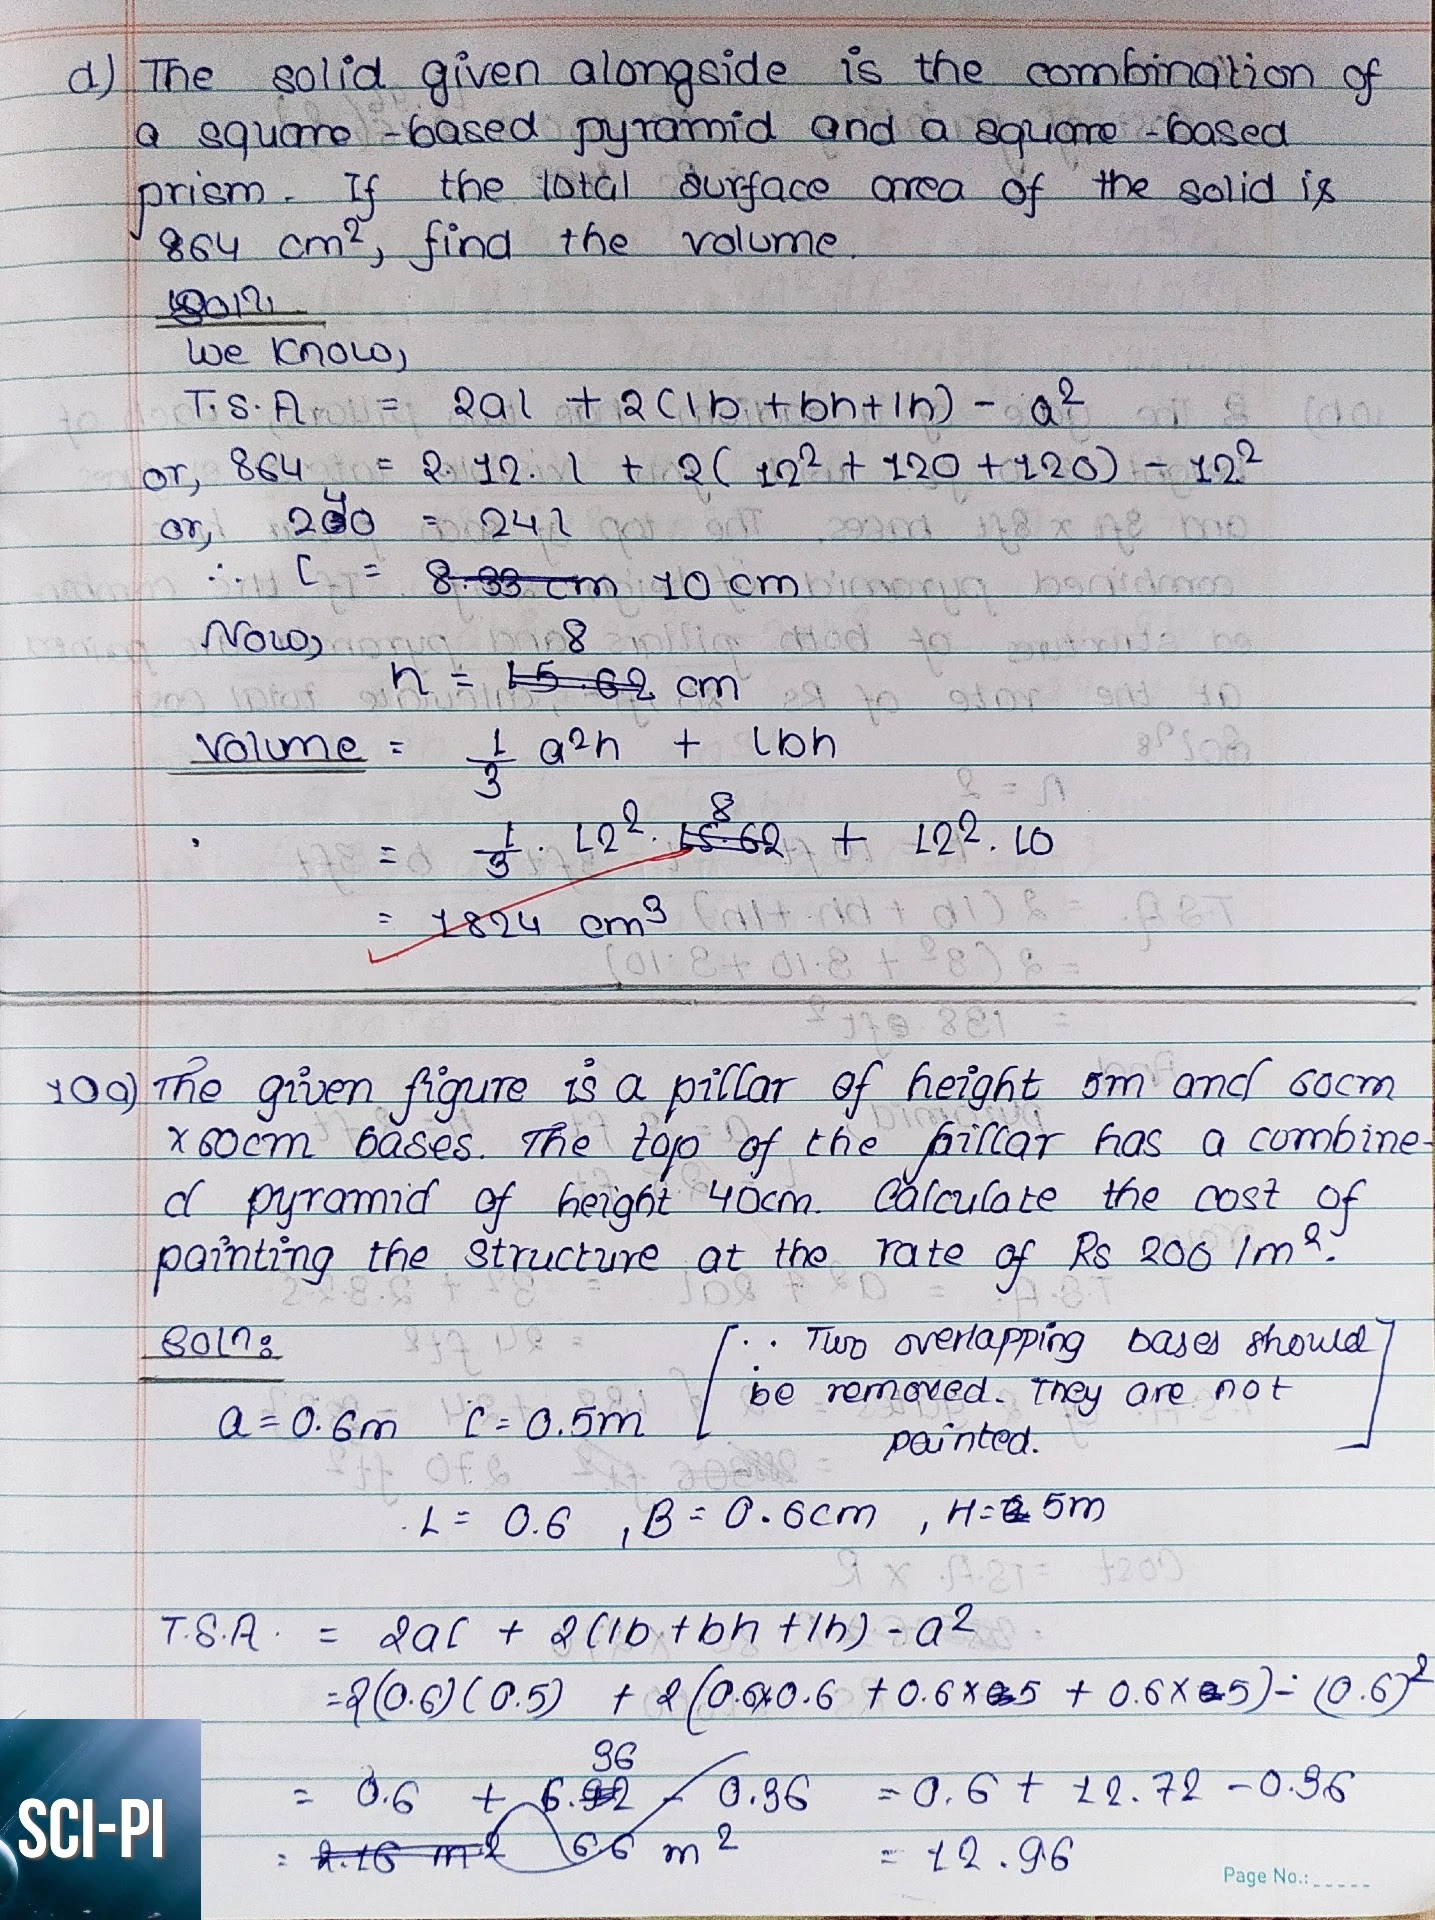 d) The solid given alongside is the combination of
a square-based pyramid and a square-based
prism. If the total surface area of the solid is
864 cm², find the volume.
Soln.
We know,
T.S.A = 2al + 2(lb + bh + lh) - a²
or, 864 = 2.12.l + 2(12² + 120 + 120) - 12²
or, 240 = 24l
∴ l = 8.33 cm 10 cm
Now,
8
h = 15.62 cm
Volume = 1/3 a²h + lbh
8
= 1/3 . 12² . 15.62 + 12² . 10
= 1824 cm³
10a) The given figure is a pillar of height 5m and 60cm
x 60cm bases. The top of the pillar has a combine-
d pyramid of height 40cm. Calculate the cost of
painting the structure at the rate of Rs 200/m².
Soln:
[∵ Two overlapping bases should
be removed. They are not
painted.]
a = 0.6m l = 0.5m
L = 0.6, B = 0.6cm, H = 5m
T.S.A. = 2al + 2(lb + bh + lh) - a²
= 2(0.6)(0.5) + 2(0.6x0.6 + 0.6x5 + 0.6x5) - (0.6)²
36
= 0.6 + 6.92 - 0.36 = 0.6 + 12.72 - 0.36
= 2.16 m² 6.6 m² = 12.96
SCI-PI
Page No.: